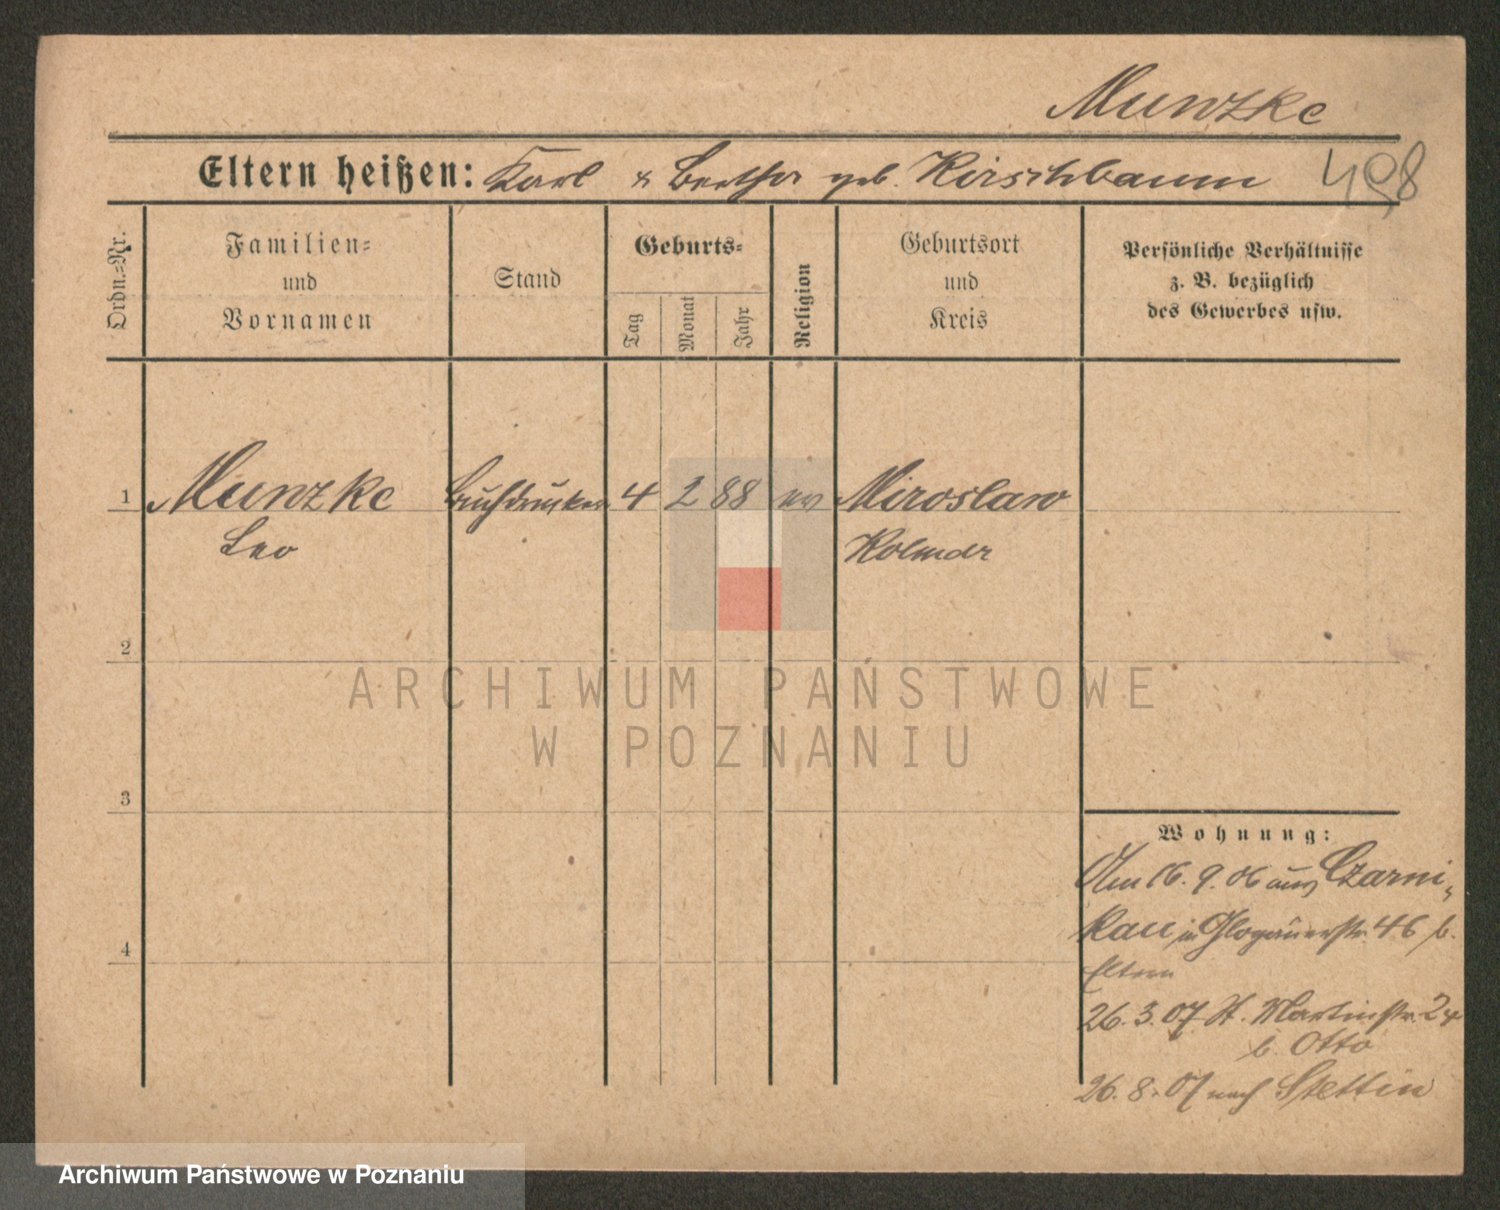 Munzke
Eltern heißen: Karl & Bertha geb. Kirschbaum 498
Ordn.=Nr.
Familien=
und
Vornamen
Stand
Geburts=
Tag
Monat
Jahr
Religion
Geburtsort
und
Kreis
Persönliche Verhältnisse
z. B. bezüglich
des Gewerbes usw.
1 Munzke Buchdrucker 4 2 88 ev Miroslaw
Leo Kolmar
2
ARCHIWUM PAŃSTWOWE
W POZNANIU
3
Wohnung:
Am 16. 9. 06 aus Czarni-
kau in Glogauerstr. 46 b.
Eltern
26. 3. 07 St. Martinstr. 24
b. Otto
26. 8. 07 nach Stettin
4
Archiwum Państwowe w Poznaniu